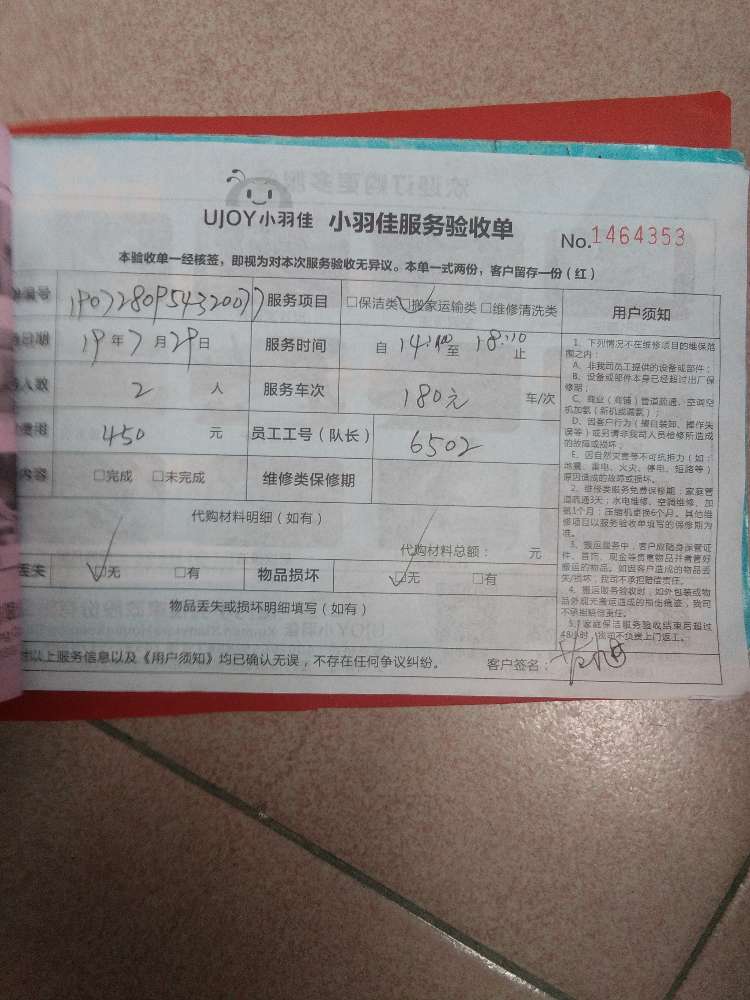 UJOY小羽佳 小羽佳服务验收单
No.1464353
本验收单一经核签，即视为对本次服务验收无异议。本单一式两份，客户留存一份（红）
编号 服务项目 □保洁类 □搬家运输类 □维修清洗类 用户须知
日期 19年7月29日 服务时间 自 14:00 至 18:10 止
人数 2 人 服务车次 180元 车/次
费用 450 元 员工工号（队长） 6502
内容 □完成 □未完成 维修类保修期
代购材料明细（如有）
代购材料总额： 元
丢失 □无 □有 物品损坏 □无 □有
物品丢失或损坏明细填写（如有）
以上服务信息以及《用户须知》均已确认无误，不存在任何争议纠纷。 客户签名：
1、下列情况不在维修项目的维保范
围之内：
A、非我司员工提供的设备或部件；
B、设备或部件本身已经超过出厂保
修期；
C、商业（商铺）管道疏通、空调空
机加氨（新机或漏氨）；
D、因客户行为（擅自装卸、操作失
误等）或另请非我司人员检修所造成
的故障或损坏；
E、因自然灾害等不可抗拒力（如：
地震、雷电、火灾、停电、短路等）
原因造成的故障或损坏。
2、维修类服务免费保修期：家庭管
道疏通3天；水电维修、空调维修、加
氨1个月；压缩机更换6个月。其他维
修项目以服务验收单填写的保修期为
准。
3、搬运服务中，客户应随身保管证
件、首饰、现金等贵重物品并看管好
搬运的物品。如因客户造成的物品丢
失/损坏，我司不承担赔偿责任。
4、搬运服务验收时，如外包装或物
品外观无搬运造成的损伤痕迹，我司
不承担赔偿责任。
5、家庭保洁服务验收结束后超过
48小时，我司不负责上门返工。